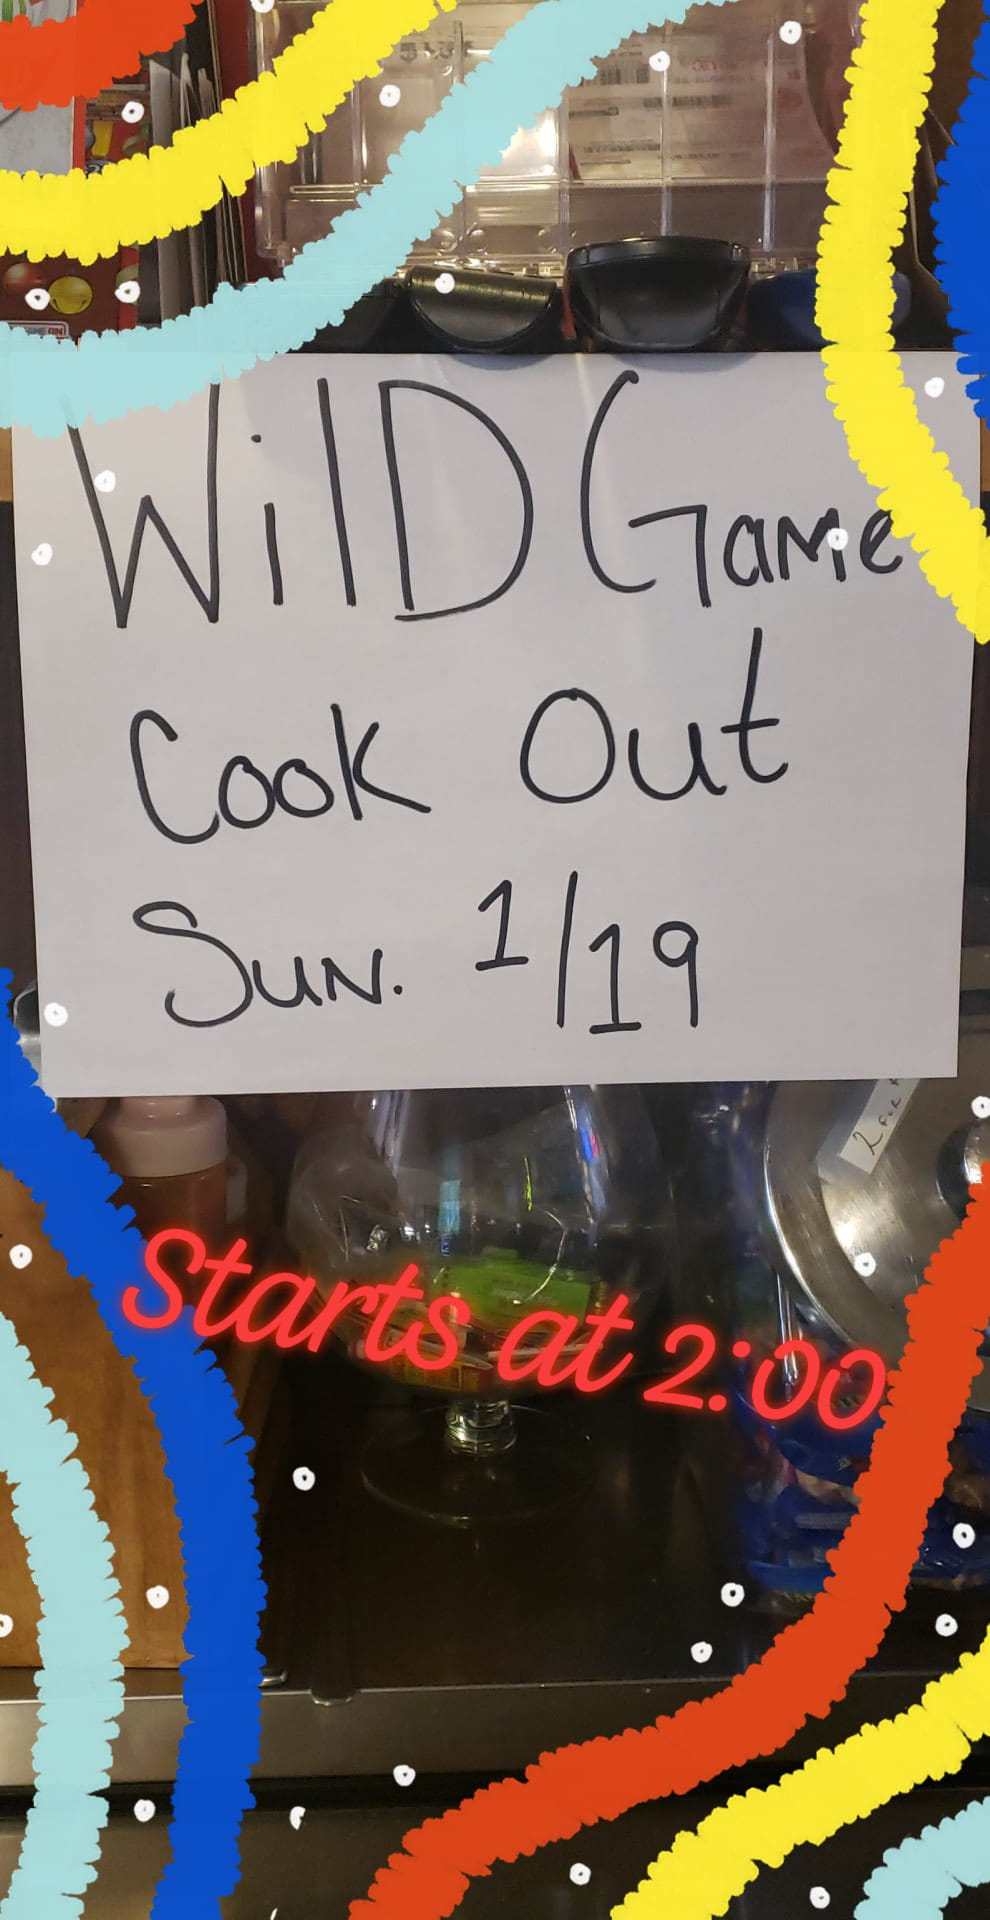 WilD Game
Cook Out
Sun. 1/19
2 FOR
Starts at 2:00